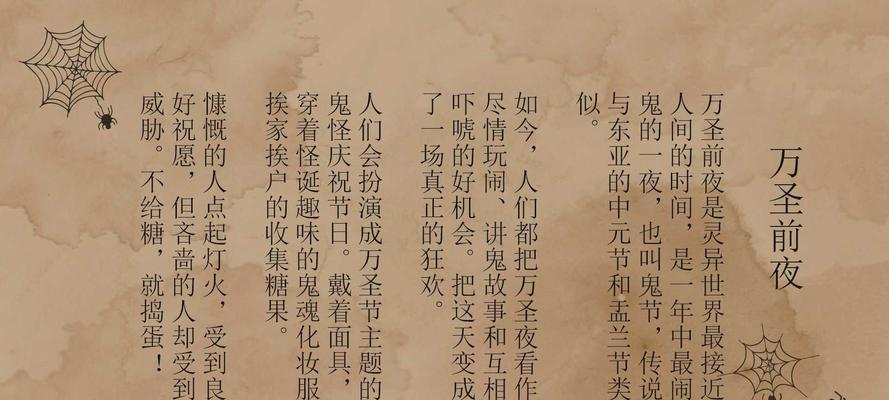 万圣前夜
万圣前夜是灵异世界最接近
人间的时间，是一年中最闹
鬼的一夜，也叫鬼节，传说
与东亚的中元节和盂兰节类
似。
如今，人们都把万圣夜看作
尽情玩闹、讲鬼故事和互相
吓唬的好机会。把这天变成
了一场真正的狂欢。
人们会扮演成万圣节主题的
鬼怪庆祝节日。戴着面具，
穿着怪诞趣味的鬼魂化妆服
挨家挨户的收集糖果。
慷慨的人点起灯火，受到良
好祝愿，但吝啬的人却受到
威胁。不给糖，就捣蛋！